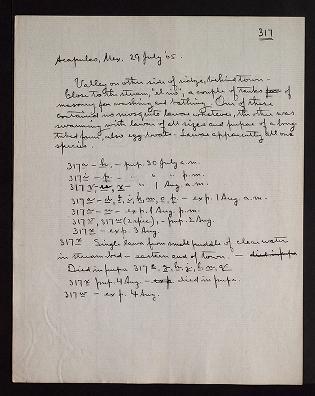 317
Acapulco, Mex. 29 July '05.
Valley on other side of ridge, behind town -
Close to the stream, "el rio", a couple of tanks of
masonry for washing and bathing. One of these
contained no mosquito larvae whatever, the other was
swarming with larvae of all sizes and pupae of a long
tubed form, also egg boats. Larvae apparently all one
species.
317 - pup. 30 July a.m.
317 - " " " p.m.
317 - " 1 Aug a.m.
317 - exp. 1 Aug a.m.
317 - exp. 1 Aug p.m.
317 , 317 - pup. 2 Aug.
317 - exp. 3 Aug.
317 x Single larva from small puddle of clear water
in stream bed - eastern end of town. - died in pupa
Died in pupa 317
317 x pup. 4 Aug. - exp died in pupa.
317 - exp. 4 Aug.